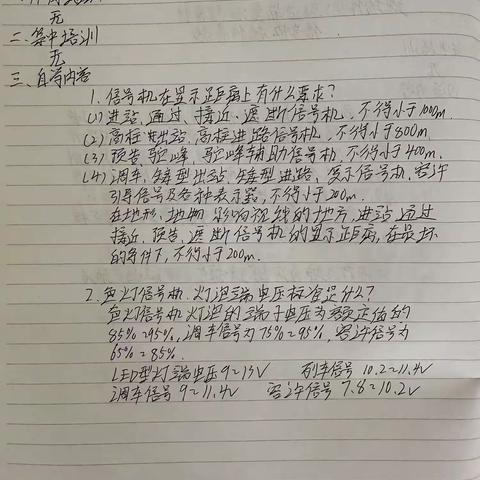 无
二、集中培训
无
三、自学内容
1. 信号机在显示距离上有什么要求?
(1) 进站、通过、接近、遮断信号机, 不得小于1000m.
(2) 高柱出站、高柱进路信号机, 不得小于800m.
(3) 预告、驼峰、驼峰辅助信号机, 不得小于400m.
(4) 调车、矮型出站、矮型进路、复示信号机, 容许
引导信号及各种表示器, 不得小于200m.
在地形、地物影响视线的地方, 进站、通过
接近、预告、遮断信号机的显示距离, 在最坏
的条件下, 不得小于200m.
2. 色灯信号机灯泡端电压标准是什么?
色灯信号机灯泡的端子电压为额定值的
85%~95%, 调车信号为75%~95%, 容许信号为
65%~85%.
LED型灯端电压9~13V 列车信号 10.2~11.4V
调车信号 9~11.4V 容许信号 7.8~10.2V